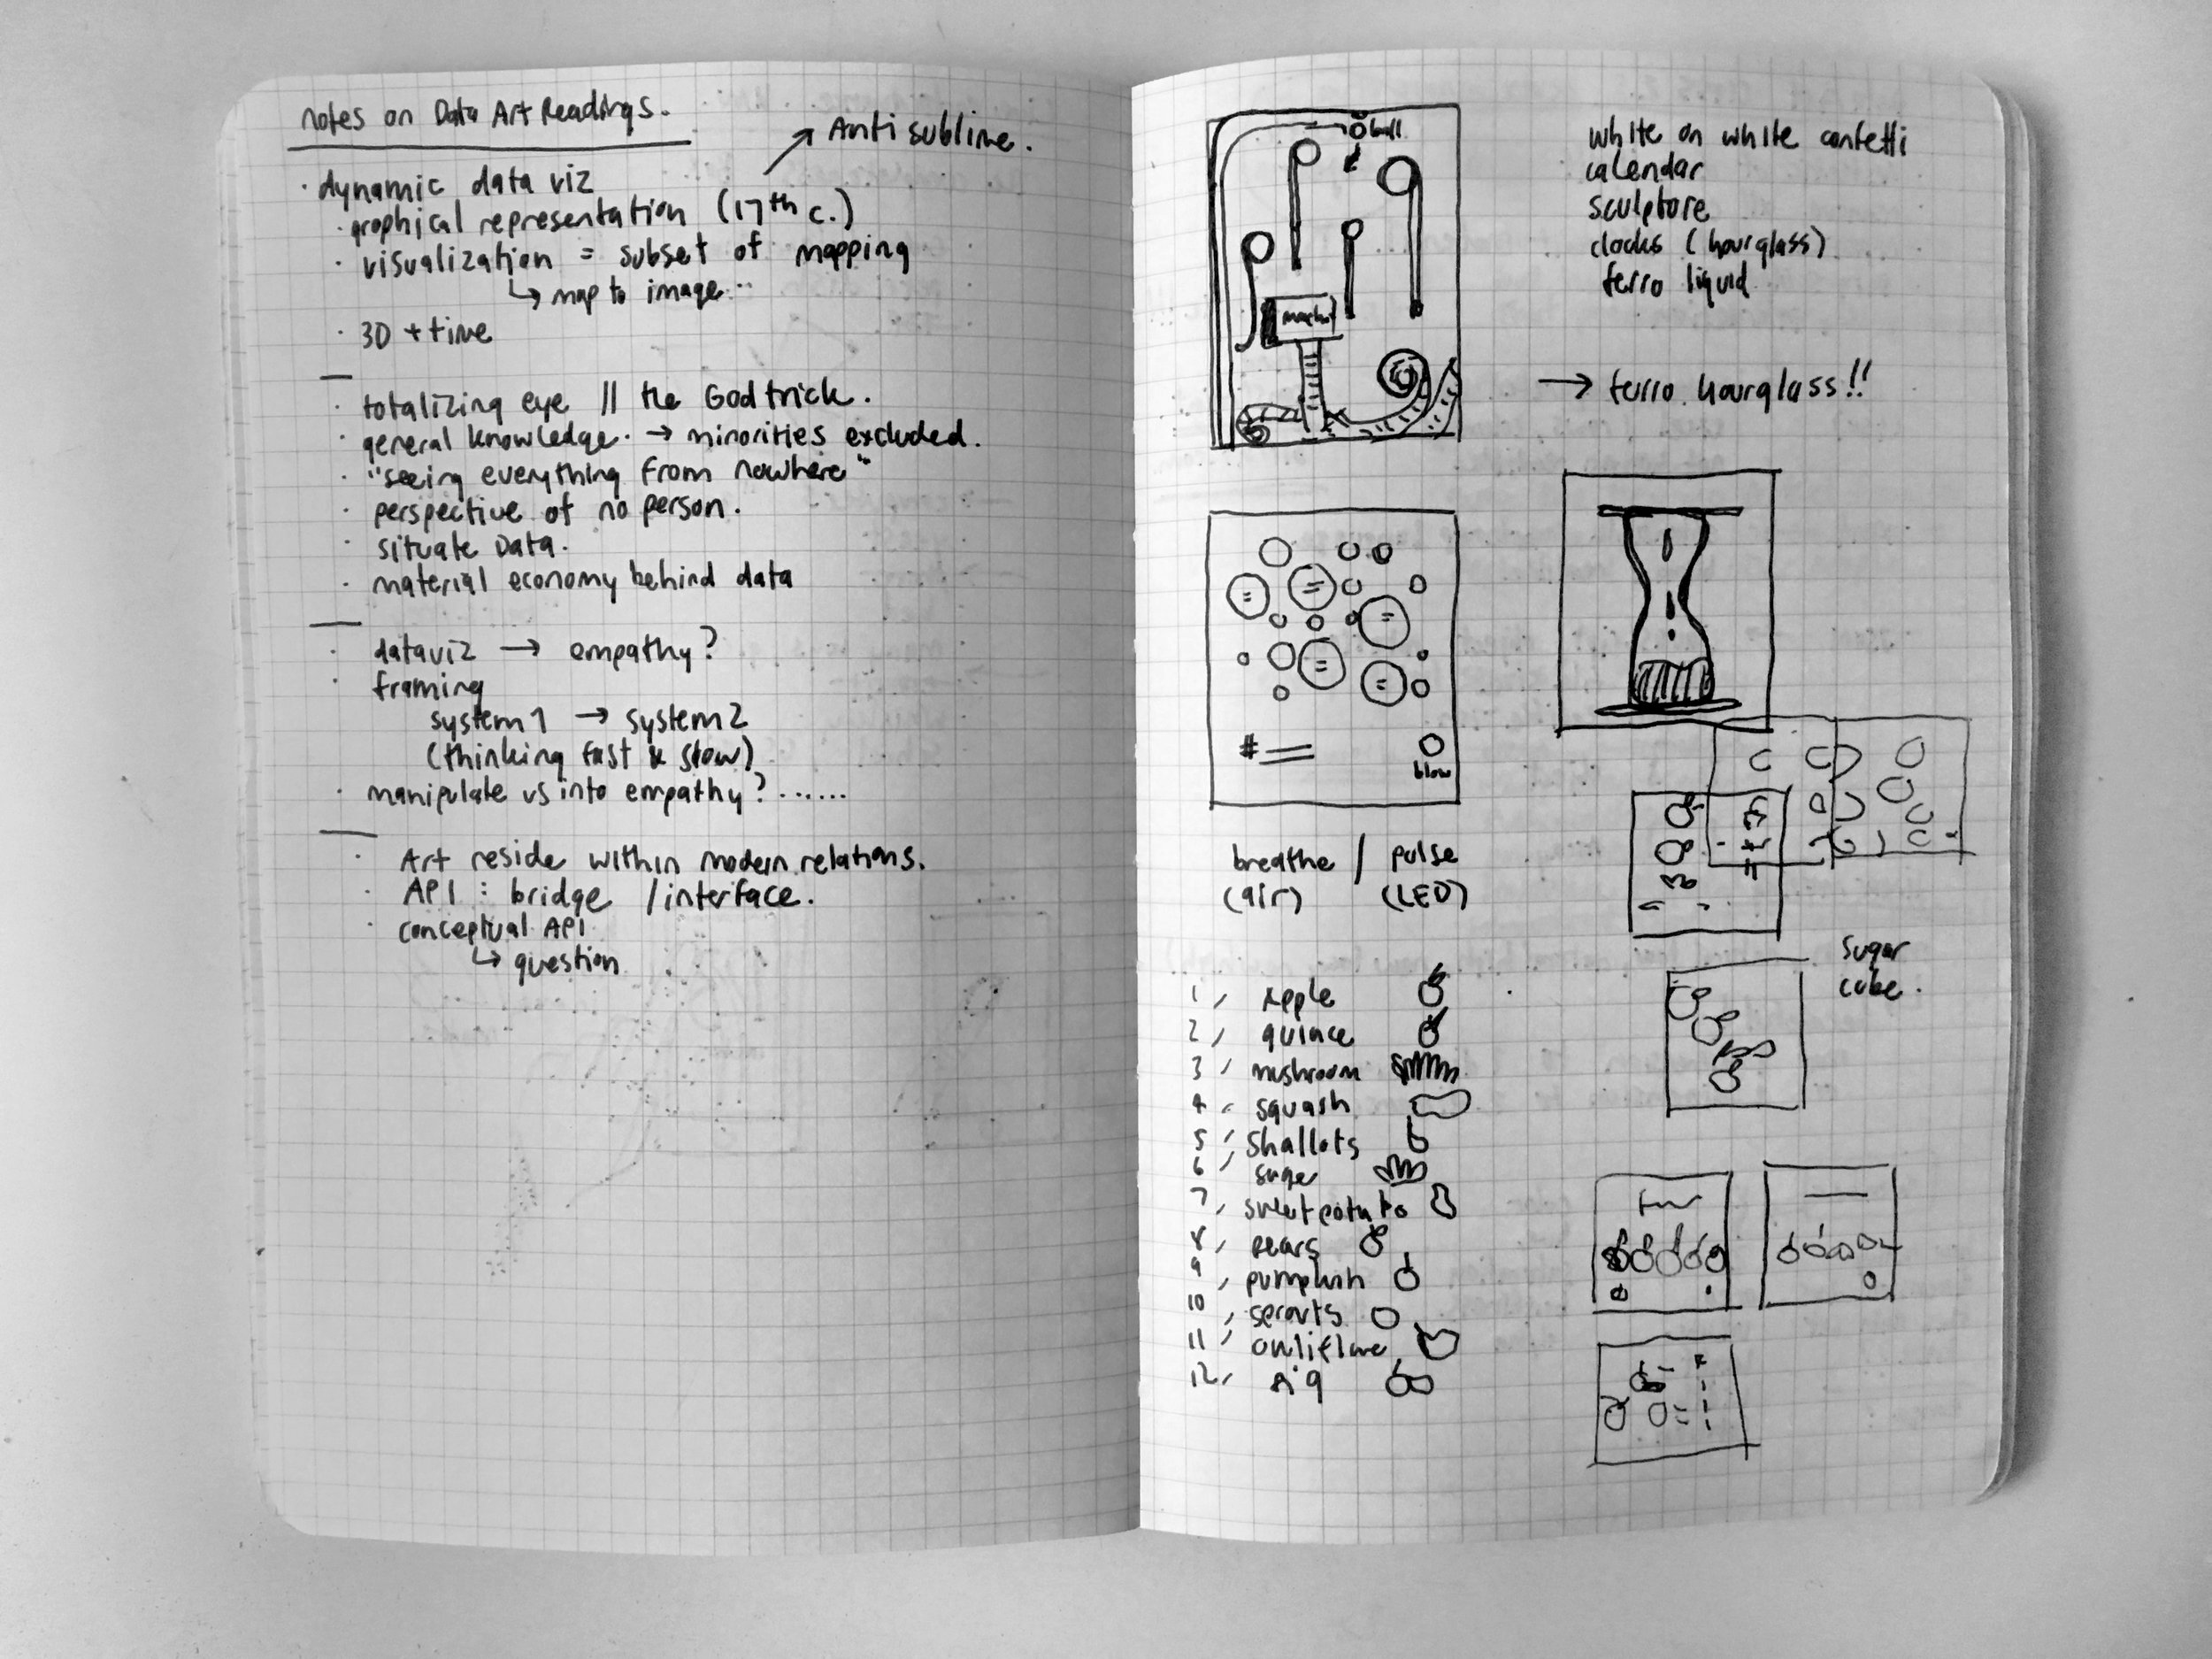 notes on Data Art Readings.
Anti sublime.
· dynamic data viz
· graphical representation (17th c.)
· visualization = subset of mapping
↳ map to image..
· 3D + time
· totalizing eye || the God trick.
· general knowledge. → minorities excluded.
· "seeing everything from nowhere"
· perspective of no person.
· situate Data.
· material economy behind data
· dataviz → empathy?
· framing
system 1 → system 2
(thinking fast & slow)
· manipulate us into empathy? ......
· Art reside within modern relations.
· API : bridge / interface.
· conceptual API
↳ question
ball
blow
breathe / pulse
(air) (LED)
1, Apple
2, quince
3, mushroom
4, squash
5, Shallots
6,
7, sweet potato
8, pears
9, pumpkin
10, sprouts
11,
12,
white on white confetti
calendar
sculpture
clocks (hourglass)
ferro liquid
→ ferro hourglass!!
sugar
cube.